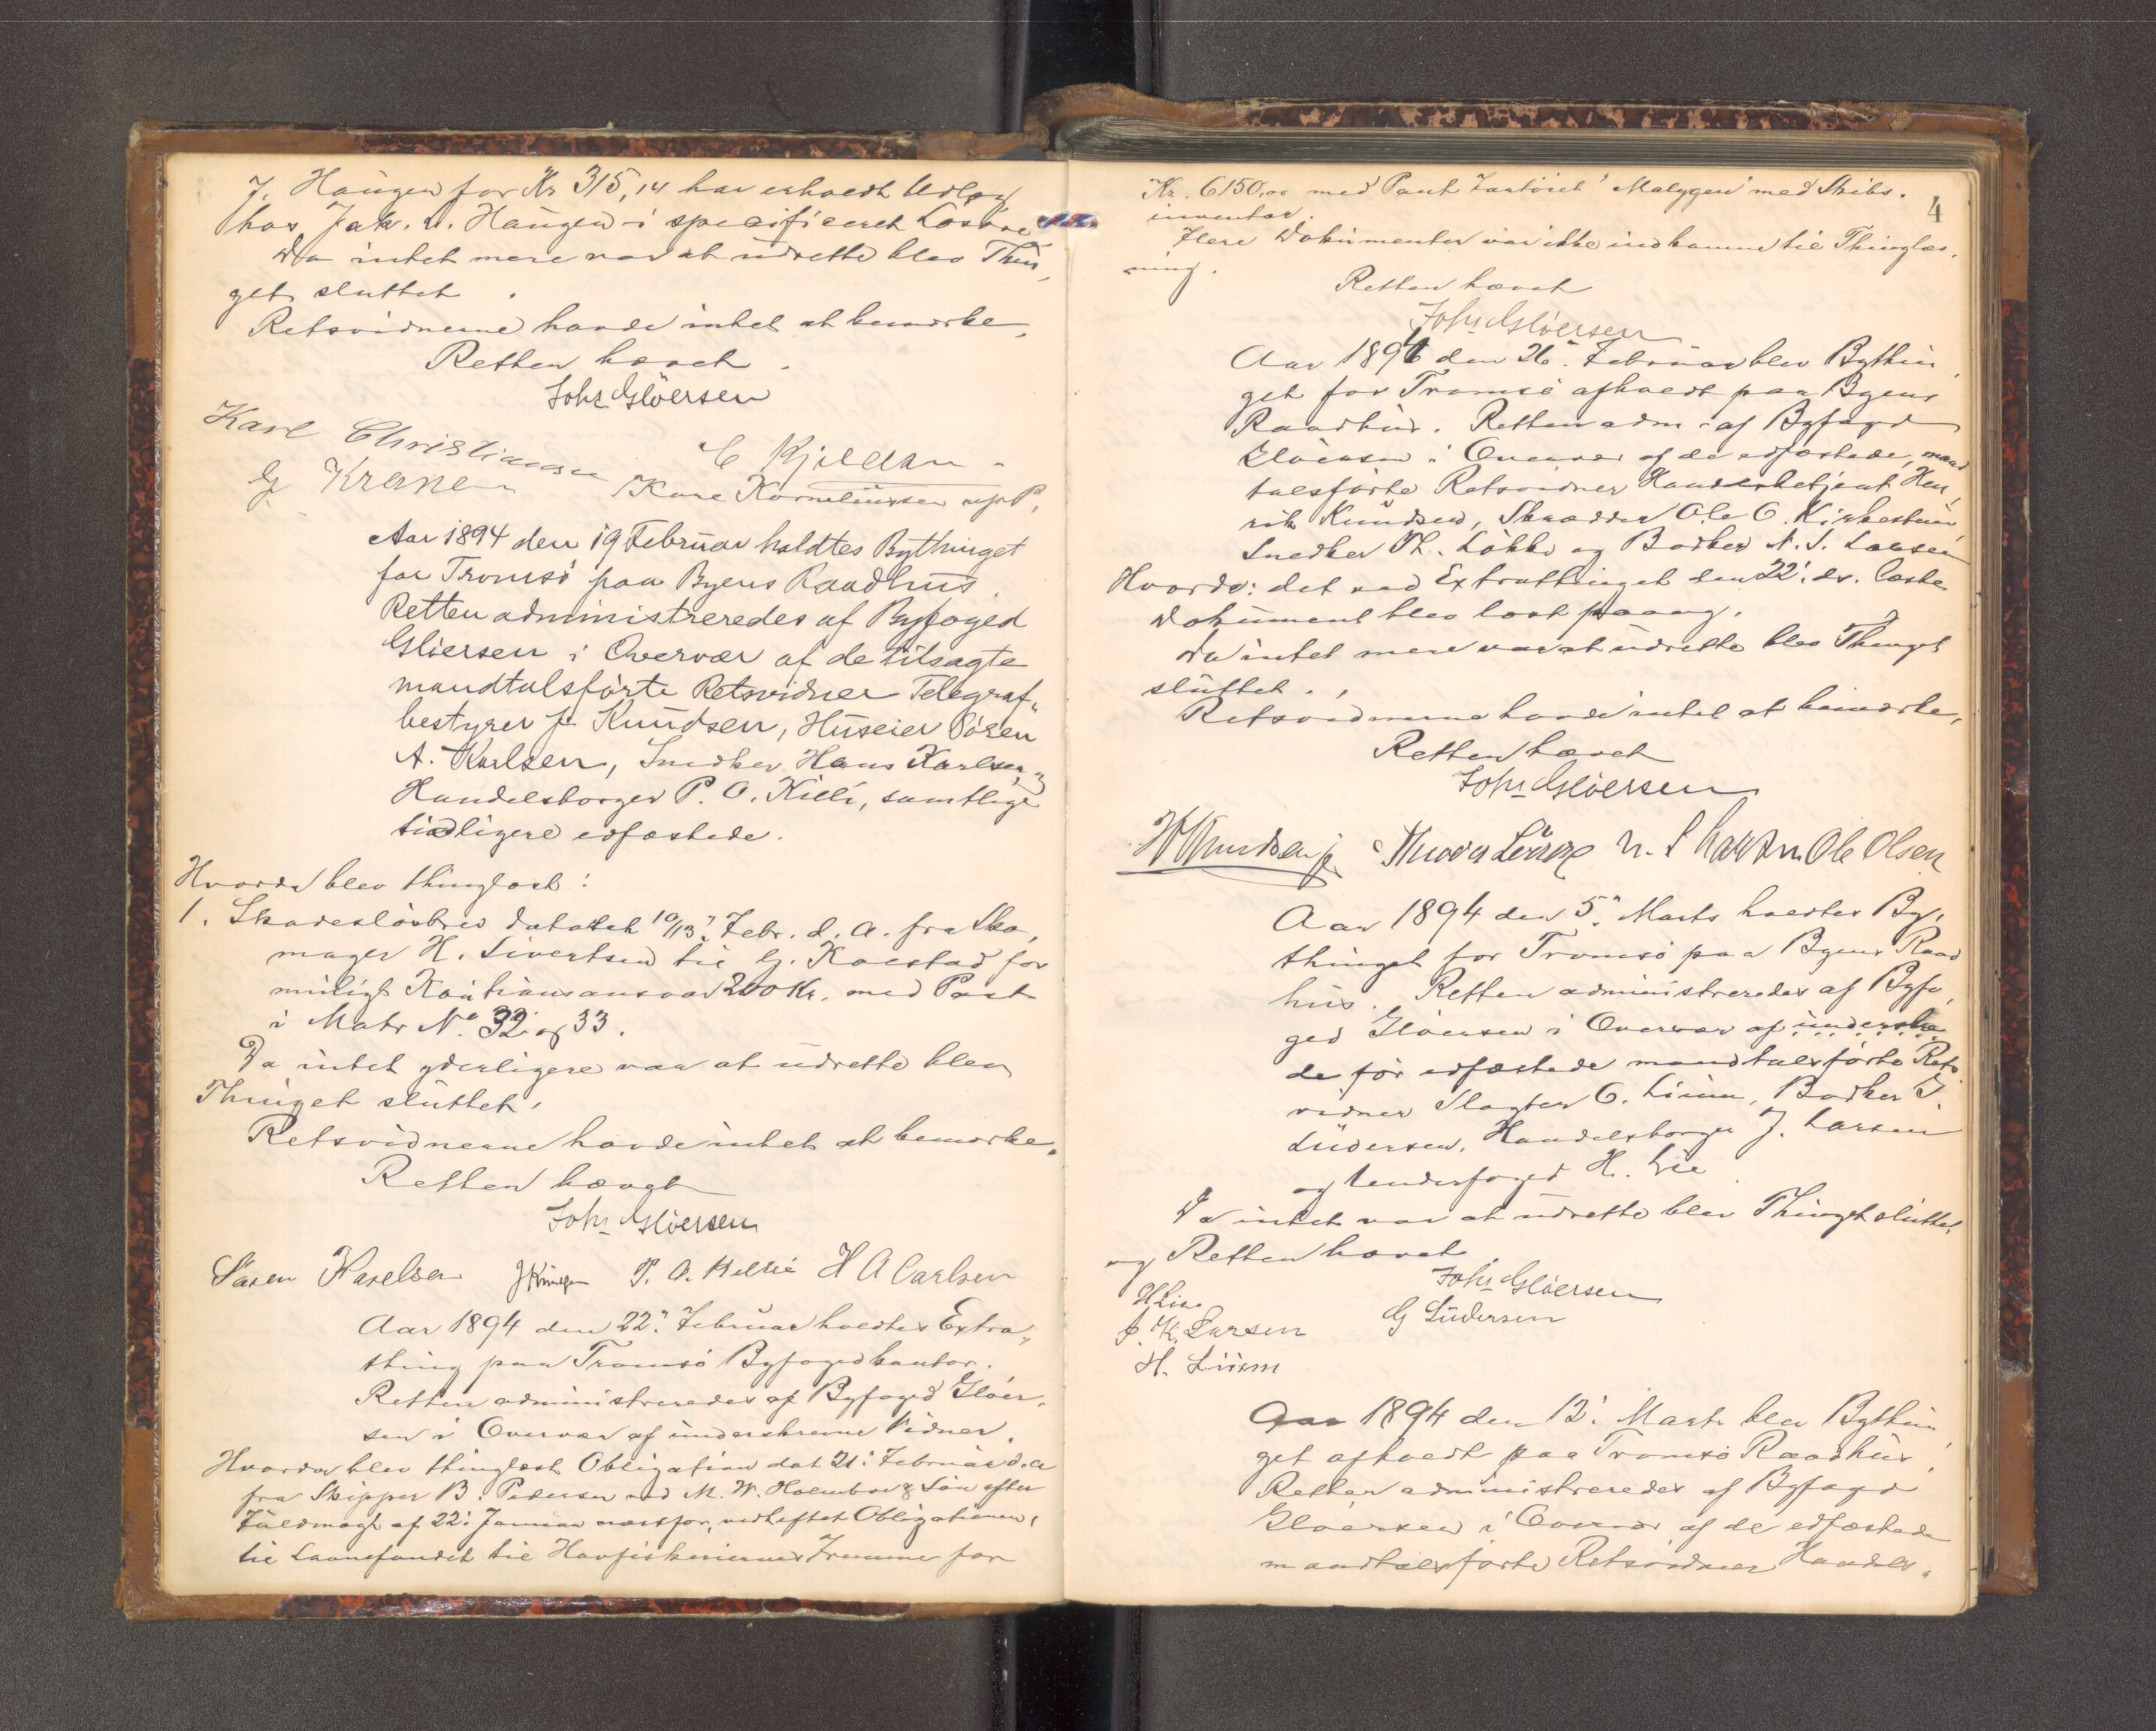 J. Haugen for Kr 315,14 har erholdt Udlæg
hos Jak. L. Haugen i specificeret Løsøre
Da intet mere var at udrette blev Thin,
get sluttet.
Retsvidnerne havde intet at bemærke,
Retten hævet.
Johs Gløersen
Karl Christiansen
G Kræmer
Aar 1894 den 19 Februar holdtes Bythinget
for Tromsø paa Byens Raadhus.
Retten administreredes af Byfoged
Gløersen i Overvær af de tilsagte
mandtalsførte Retsvidner Telegraf„
bestyrer J. Knudsen, Huseier Søren
A. Karlsen, Snedker Hans Karlsen,
Handelsborger P. O. Killi, samtlige
tidligere edfæstede.
Hvorda blev thinglæst:
1. Skadesløsbrev dateret 10/13' Febr. d. A. fra Sko,
mager H. Sivertsen til G. Kaestad for
muligt Kautionsansvar 200 Kr. med Pant
i Matr No. 32 og 33.
Da intet yderligere var at udrette blev
Thinget sluttet,
Retsvidnerne havde intet at bemærke.
Retten hævet
Johs Gløersen
Søren Karelsen P. O. Killie H A Carlsen
Aar 1894 den 22' Februar holdtes Extra„
thing paa Tromsø Byfogedkontor.
Retten administreredes af Byfoged Gløer,
sen i Overvær af underskrevne Vidner.
Hvorda blev thinglæst Obligation dat 21' Februar d. A
fra Skipper B. Pedersen ved M. W. Holmboe & Søn efter
Fuldmagt af 22' Januar næstfor, vedheftet Obligationen,
til Laanefondet til Havfiskeriernes Fremme for
4
Kr. 6150,00 med Pant Fartøiet "Malygen" med Skibs.
inventar.
Flere Dokumenter var ikke indkomne til Thinglæs,
ning.
Retten hævet
Johs Gløersen
Aar 1894 den 26' Februar blev Bythin,
get for Tromsø afholdt paa Byens
Raadhus. Retten adm. af Byfoged
Gløersen i Overvær af de edfæstede, mand
talsførte Retsvidner Handelsbetjent Hen,
rik Knudsen, Skrædder Ole O. Kirkestuen,
Snedker Th. Løkke og Bødker N. S. Larsen
Hvorda: det ved Extrathinget den 22' ds. læste
Dokument blev læst paany.
Da intet mere var at udrette blev Thinget
sluttet.
Retsvidnerne havde intet at bemærke,
Retten hævet
Johs Gløersen
H Knudsen jr N. S Larsen Ole Olsen
Aar 1894 den 5' Marts holdtes By,
thinget for Tromsø paa Byens Raad
hus. Retten administreredes af Byfo,
ged Gløersen i Overvær af underskre
de før edfæstede mandtalsførte Rets
vidner Slagter O. Liium, Bødker G.
Lüdersen, Handelsborger J. Larsen
og Underfoged H. Lie
Da intet var at udrette blev Thinget sluttet,
og Retten hævet.
Johs Gløersen
H Lie
J. K. Larsen G Lüdersen
H. Liium
Aar 1894 den 12' Marts blev Bythin,
get afholdt paa Tromsø Raadhus.
Retten administreredes af Byfoged
Gløersen i Overvær af de edfæstede
mandtalsførte Retsvidner Handels„